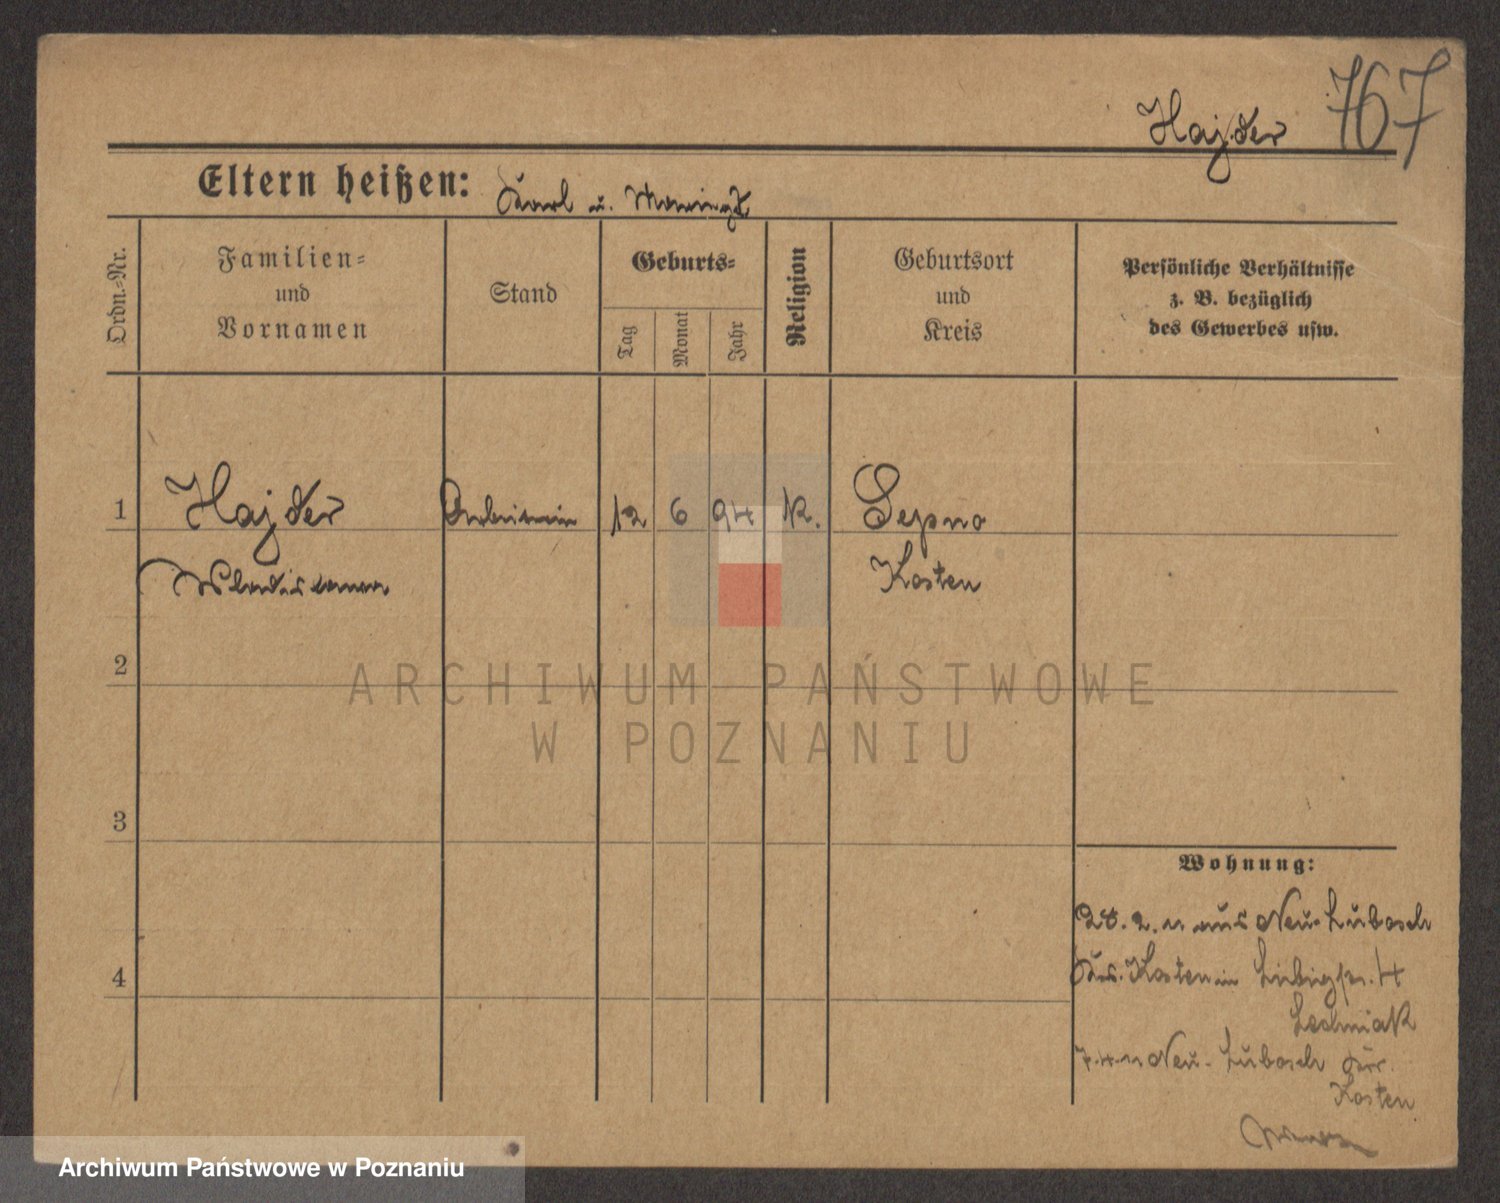 Hajder 767
Eltern heißen: Karl u.
Ordn.-Nr.
Familien-
und
Vornamen
Stand
Geburts-
Tag
Monat
Jahr
Religion
Geburtsort
und
Kreis
Persönliche Verhältnisse
z. B. bezüglich
des Gewerbes usw.
1 Hajder Arbeiterin 12 6 94 K. Sepno
Wladislawa Kosten
2
3
4
Wohnung:
28. 2. 11 aus Neu-Lubosch
Krs. Kosten in Liebigstr. 4
Ledniak
7.4.11 Neu-Lubosch Kr.
Kosten
ARCHIWUM PAŃSTWOWE
W POZNANIU
Archiwum Państwowe w Poznaniu